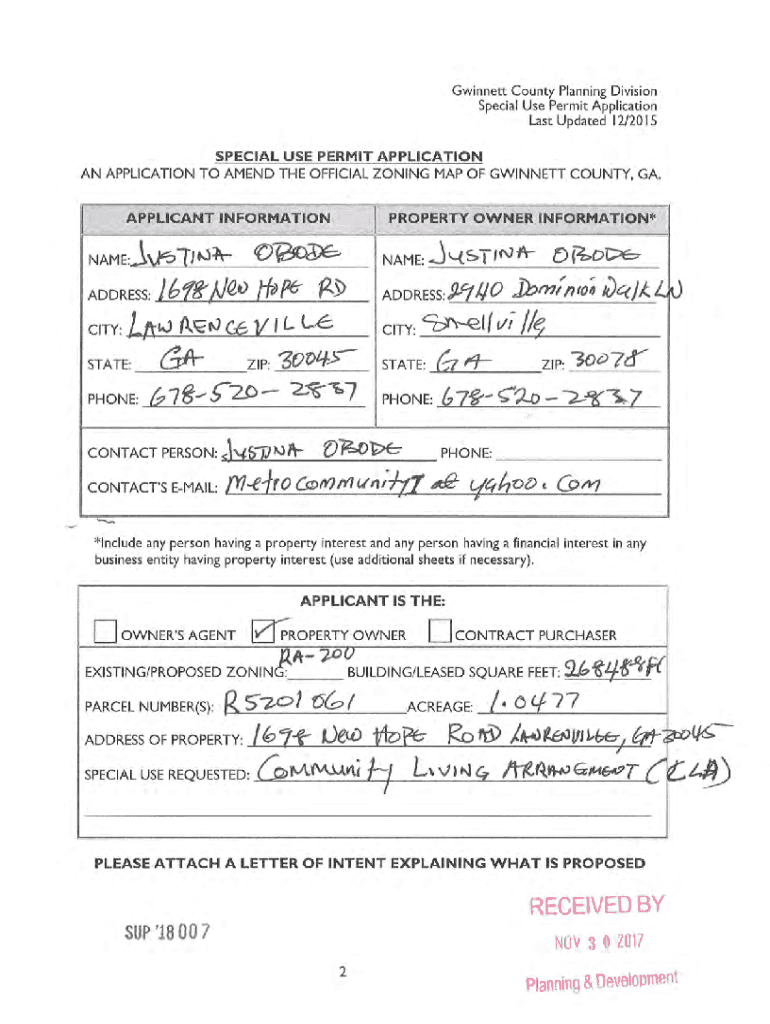 Gwinnett County Planning Division
Special Use Permit Application
Last Updated 12/2015
SPECIAL USE PERMIT APPLICATION
AN APPLICATION TO AMEND THE OFFICIAL ZONING MAP OF GWINNETT COUNTY, GA.
APPLICANT INFORMATION PROPERTY OWNER INFORMATION*
NAME: JUSTINA OBODE NAME: JUSTINA OBODE
ADDRESS: 1698 New HoPE RD ADDRESS: 2940 Dominion Walk LN
CITY: LAWRENCEVILLE CITY: Snellville
STATE: GA ZIP: 30045 STATE: GA ZIP: 30078
PHONE: 678-520-2837 PHONE: 678-520-2837
CONTACT PERSON: JUSTINA OBODE PHONE:
CONTACT'S E-MAIL: Metrocommunity1 at yahoo.com
*Include any person having a property interest and any person having a financial interest in any
business entity having property interest (use additional sheets if necessary).
APPLICANT IS THE:
OWNER'S AGENT PROPERTY OWNER CONTRACT PURCHASER
EXISTING/PROPOSED ZONING: RA-200 BUILDING/LEASED SQUARE FEET:
PARCEL NUMBER(S): R5201 061 ACREAGE: 1.0477
ADDRESS OF PROPERTY: 1698 New HoPE ROAD LAWRENVILLE, GA 30045
SPECIAL USE REQUESTED: Community LIVING ARRANGMENT (CLA)
PLEASE ATTACH A LETTER OF INTENT EXPLAINING WHAT IS PROPOSED
RECEIVED BY
SUP '18 007
NOV 30 2017
2
Planning & Development